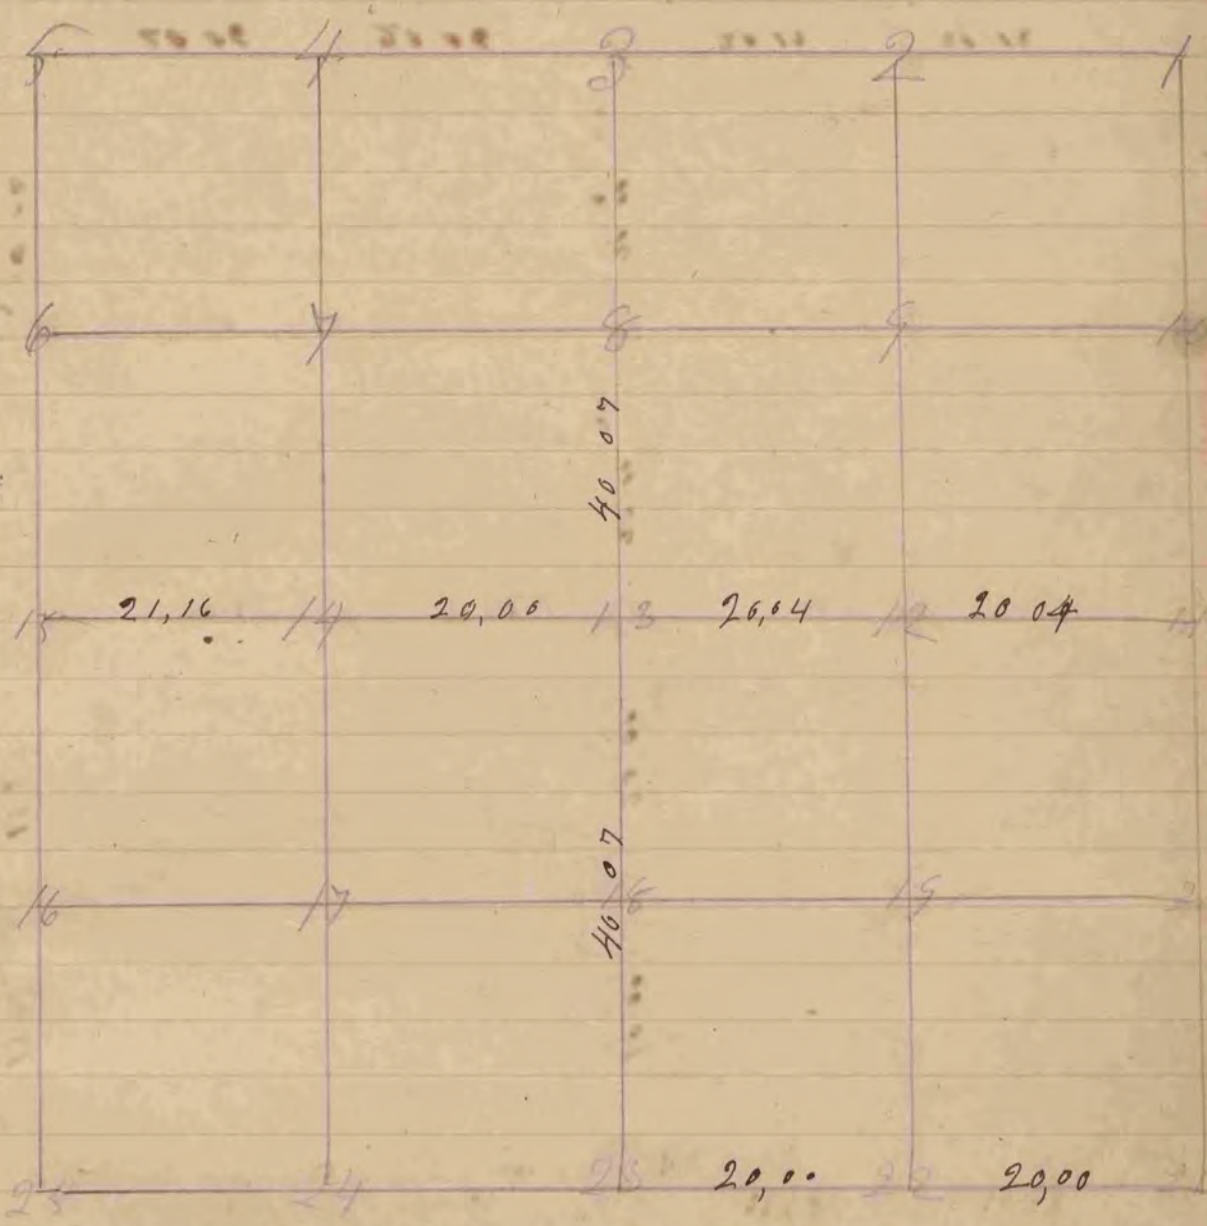 5 4 3 2 1
6 7 8 9 10
40 07
21,16 14 20,00 13 20,04 12 20 04 11
16 17 18 19
40 07
25 24 23 20,00 22 20,00